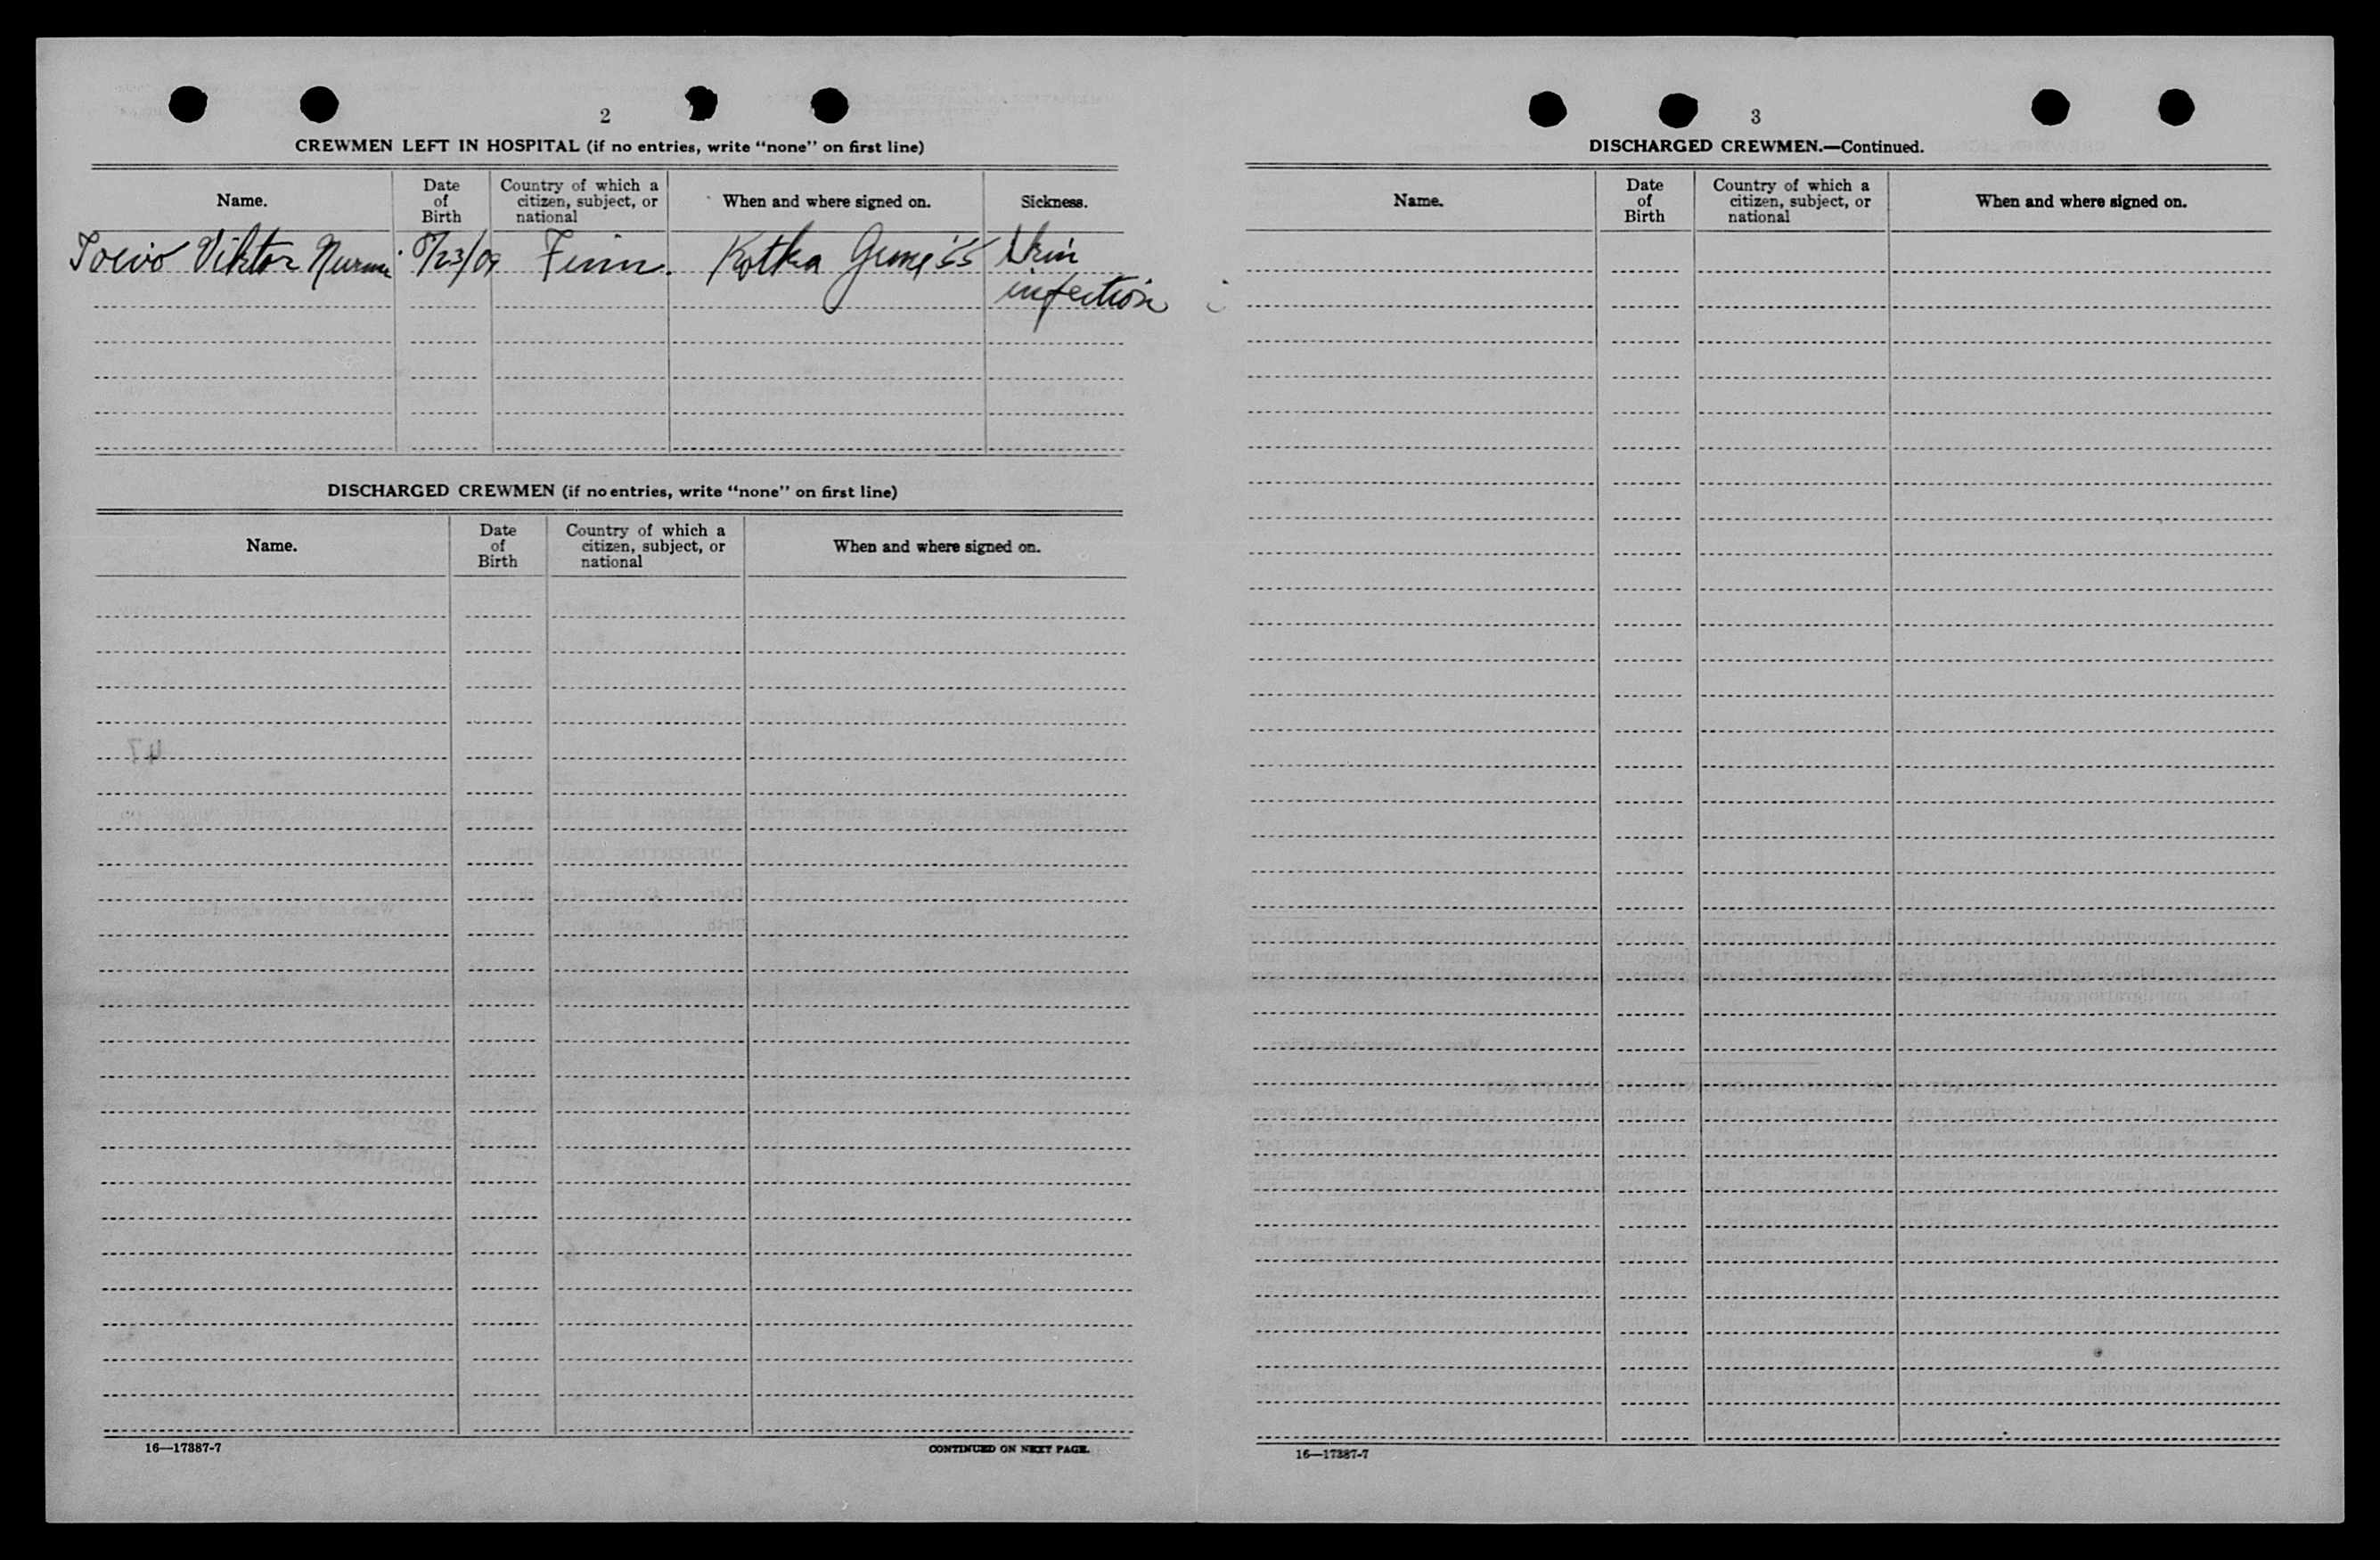 2
CREWMEN LEFT IN HOSPITAL (if no entries, write “none” on first line)
Name.
Date of Birth
Country of which a citizen, subject, or national
When and where signed on.
Sickness.
Toivo Viktor Nurmi /23/09 Finn. Kotka June '55 Skin
infection
DISCHARGED CREWMEN (if no entries, write “none” on first line)
Name.
Date of Birth
Country of which a citizen, subject, or national
When and where signed on.
16—17387-7
CONTINUED ON NEXT PAGE.
3
DISCHARGED CREWMEN.—Continued.
Name.
Date of Birth
Country of which a citizen, subject, or national
When and where signed on.
16—17387-7